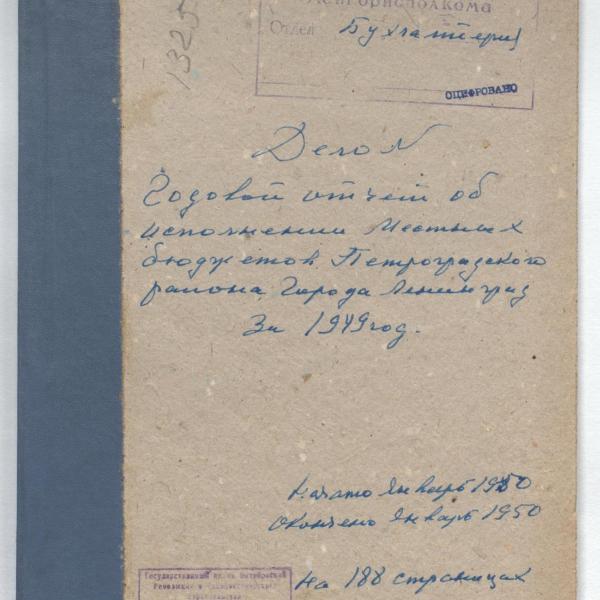 Ленгорисполкома
Отдел Бухгалтерия
1325
ОЦИФРОВАНО
Дело N
Годовой отчет об
исполнении Местных
бюджетов Петроградского
района Города Ленинград
За 1949 год.
Начато Январь 1950
Окончено Январь 1950
На 188 страницах
Государственный архив Октябрьской
Революции и социалистического
строительства